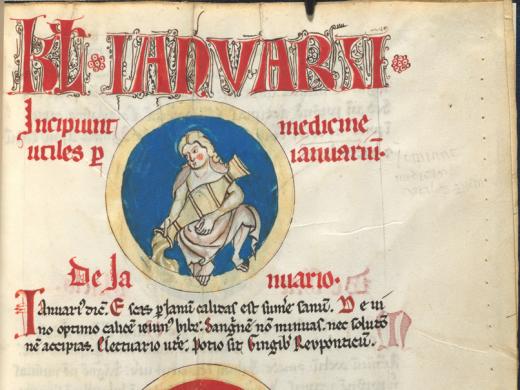 Kł · IANVARII ·
Incipiunt medicine
utiles p ianuariū.
De Ia nuario.
Ianuari' dic̄. E scas p Ianū calidas est sume sanū. De ui
no optimo calicē ieiun' bibe. Sanguinē nō minuas. nec solutō
nē accipias. Electuario ute. Potio sit Gingib' Reuponticū.